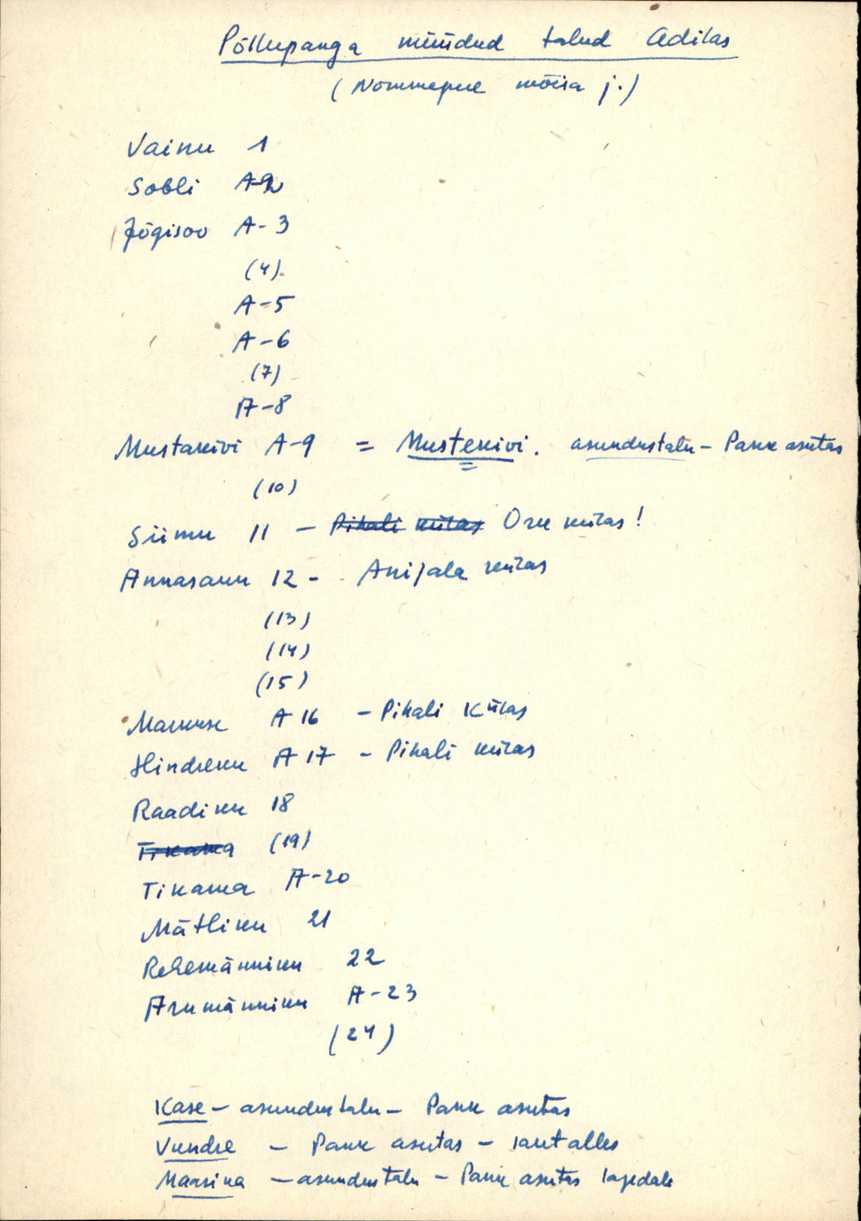 Põllupanga müüdud talud Adilas
(Nõmmepere mõisa j.)
Vainu 1
Sobli A-2
Jõgisoo A-3
(4).
A-5
A-6
(7)
A-8
Mustakivi A-9 = Mustekivi. asundustalu - Pank asutas
(10)
Siimu 11 - Pihali külas Oru külas!
Annasaun 12 - Anijala külas
(13)
(14)
(15)
A 16 - Pihali Külas
Hindreku A 17 - Pihali külas
Raadiku 18
Tikama (19)
Tikama A-20
Mätliku 21
Rehemänniku 22
Arumänniku A-23
(24)
Kase - asundustalu - Pank asutas
Vundre - Pank asutas - laut alles
Maasika - asundustalu - Pank asutas lagedale